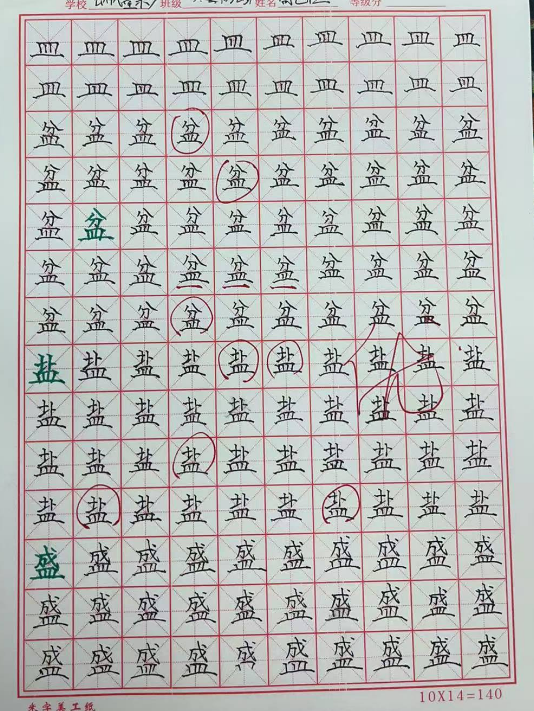 学校 班级 姓名 等级分
皿皿皿皿皿皿皿皿皿皿
皿皿皿皿皿皿皿皿皿皿
盆盆盆盆盆盆盆盆盆盆
盆盆盆盆盆盆盆盆盆盆
盆盆盆盆盆盆盆盆盆盆
盆盆盆盆盆盆盆盆盆盆
盆盆盆盆盆盆盆盆盆盆
盐盐盐盐盐盐盐盐盐盐
盐盐盐盐盐盐盐盐盐盐
盐盐盐盐盐盐盐盐盐盐
盐盐盐盐盐盐盐盐盐盐
盛盛盛盛盛盛盛盛盛盛
盛盛盛盛盛盛盛盛盛盛
盛盛盛盛盛盛盛盛盛盛
美工纸 10X14=140